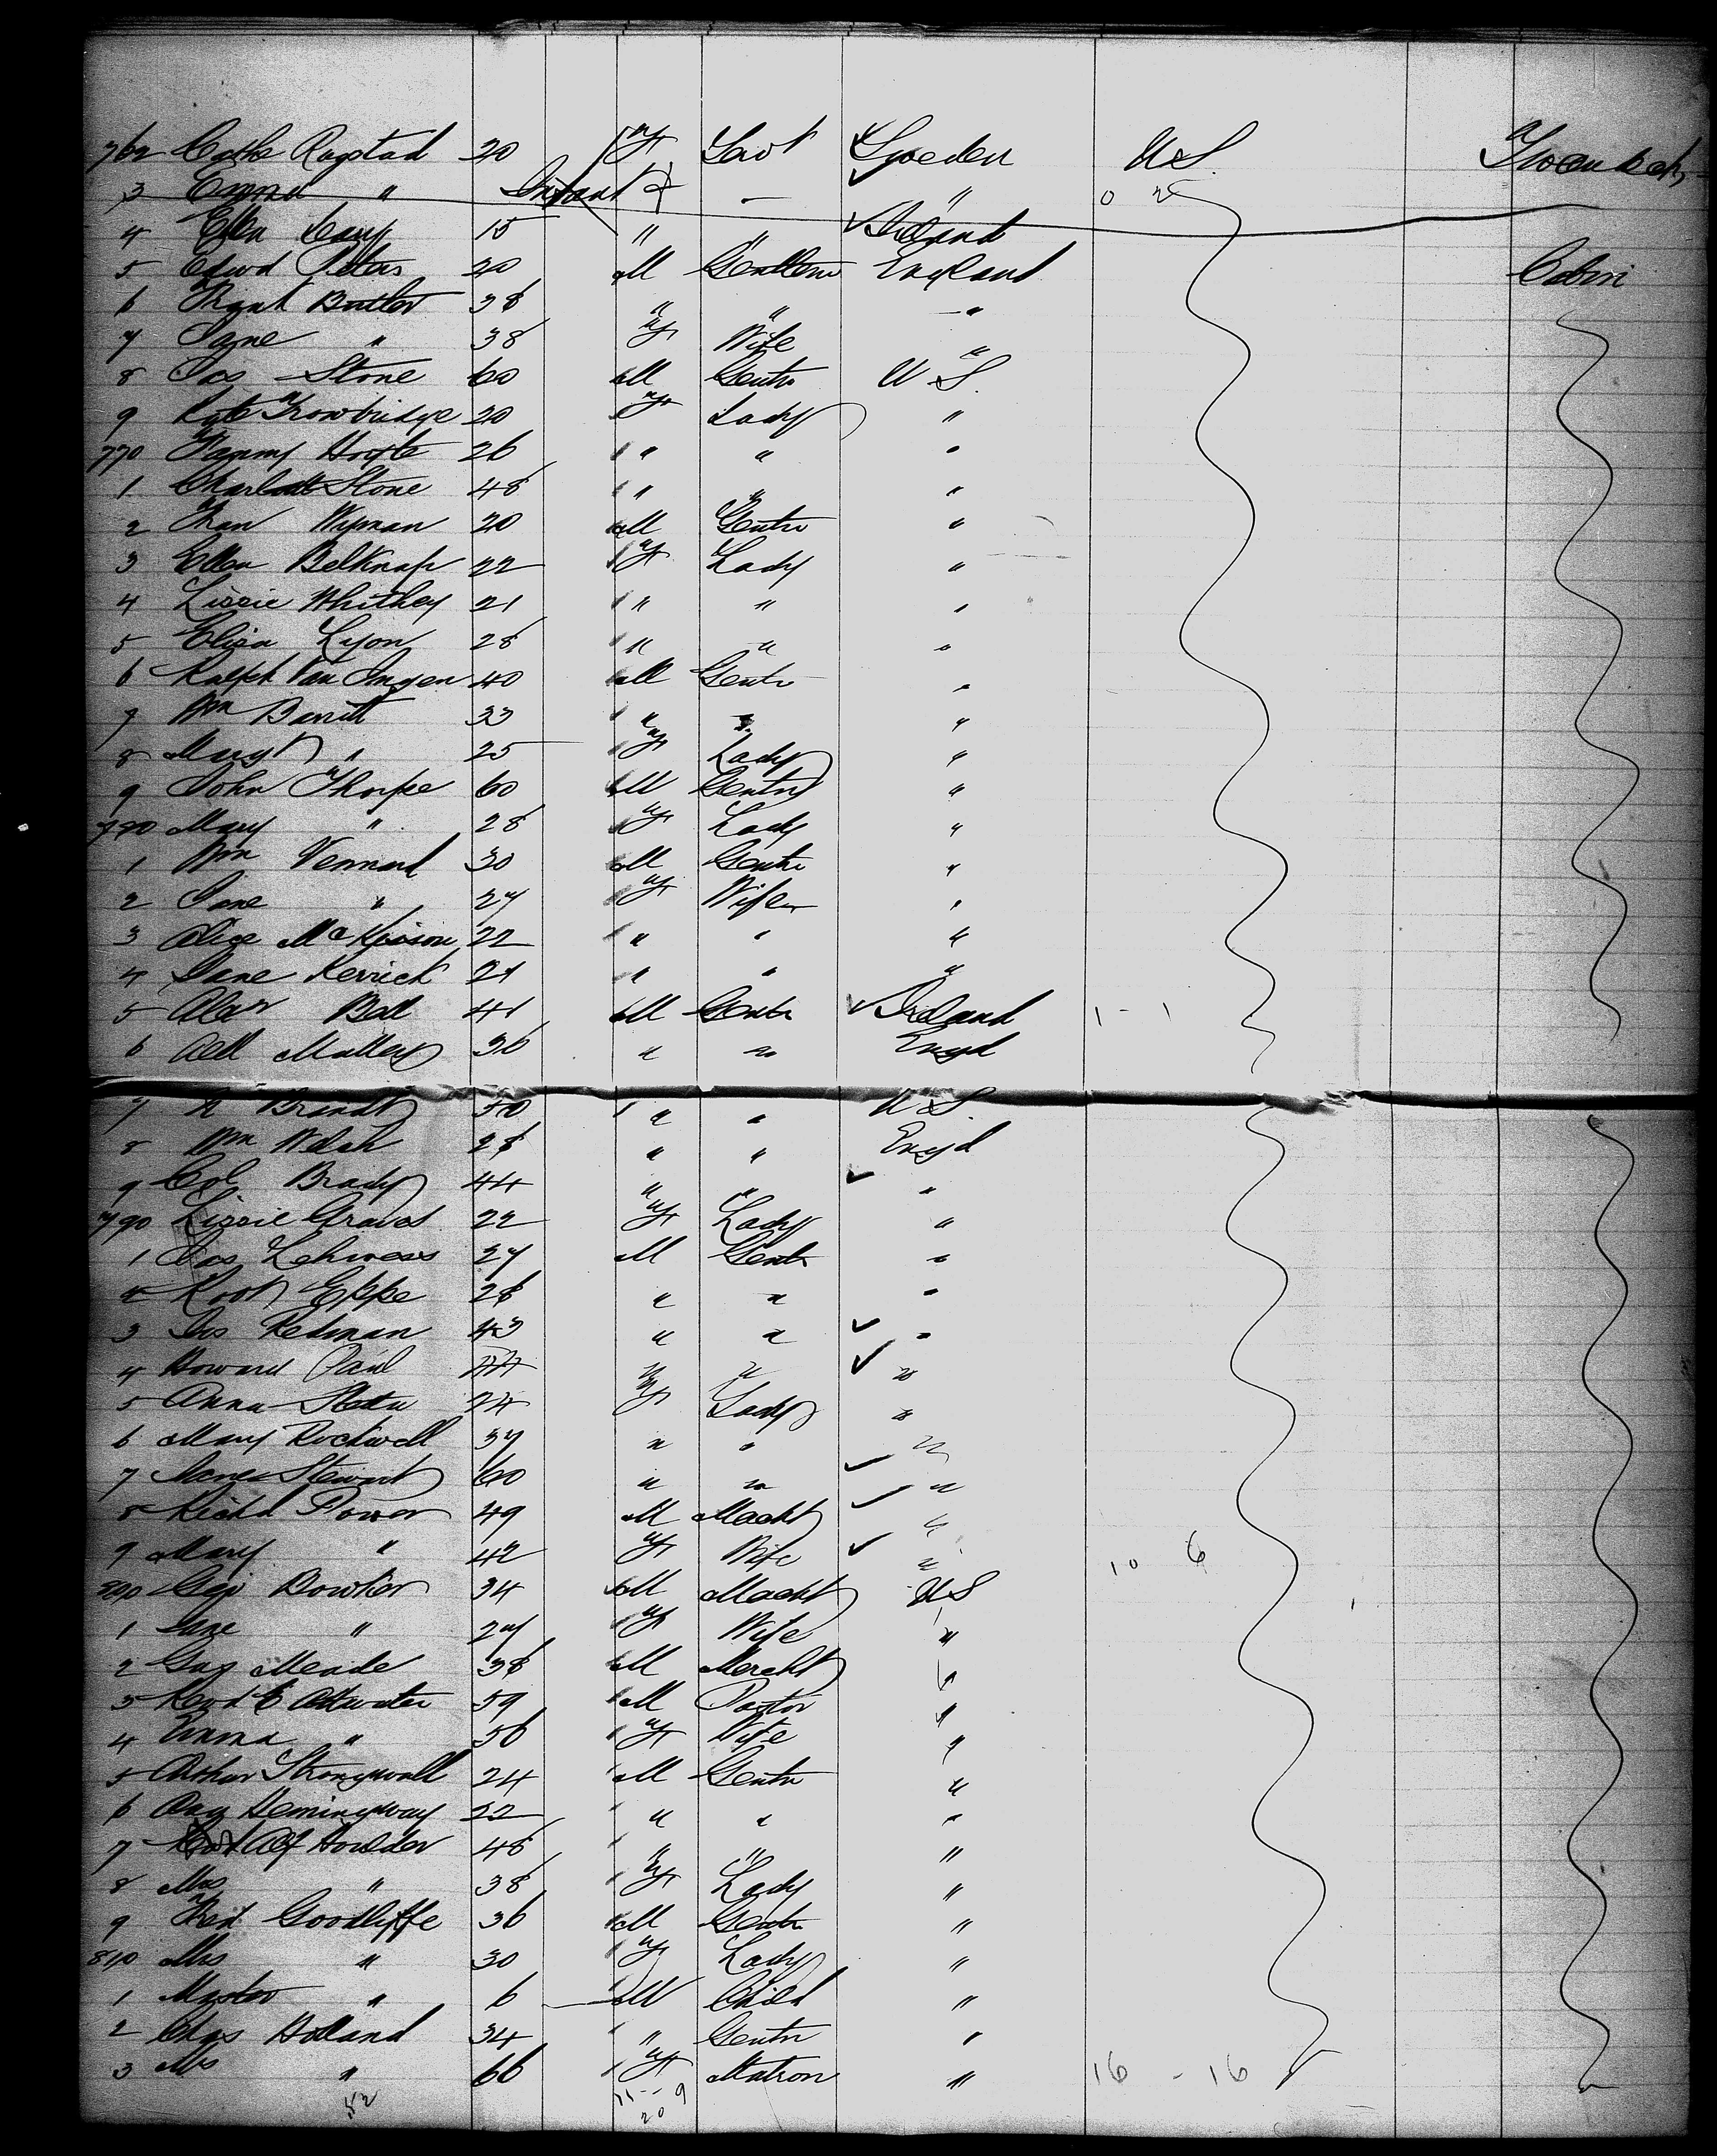 762 Cathe Rogstad 20 f Servt Sweden U.S. Tweendeck
3 Emma " Infant f — " 0 2
4 Ellen Leary 15 " " Ireland
5 Edwd Peters 20 M Gentlem England Cabin
6 Frank Butler 38 " " "
7 Jane " 38 f Wife "
8 Jas Stone 60 M Gentn U S.
9 Kate Trowbridge 20 f Lady "
770 Fanny Hoyte 26 " " "
1 Charlotte Stone 48 " " "
2 Fran Wyman 20 M Gentn "
3 Ellen Belknap 22 f Lady "
4 Lizzie Whitney 21 " " "
5 Eliza Lyon 28 " " "
6 Ralph Van Ingen 40 M Gentn "
7 Wm Barritt 33 " " "
8 Mary " 25 f Lady "
9 John Thorpe 60 M Gentn "
780 Mary " 28 f Lady "
1 Wm Vennard 30 M Gentn "
2 Jane " 27 f Wife "
3 Alice Mc 22 " " "
4 Jane Kerrick 21 " " "
5 Alexr Bell 41 M Gentn Ireland 1 - 1
6 Mallery 36 " " Engd
7 Brandt 50 " " U S.
8 Wm Welsh 28 " " Engd
9 Col Brady 44 " " "
790 Lizzie Graves 22 f Lady "
1 Jas 27 M Gentn "
2 Robt Eppe 28 " " "
3 Jas Redman 43 " " "
4 Howard Paul 44 " " "
5 Anna 24 f Lady "
6 Mary Rockwell 37 " " "
7 Agnes Stewart 60 " " "
8 Richd Power 49 M Mercht "
9 Mary " 42 f Wife " 10 6
800 Geo Bowker 34 M Mercht U S
1 Jane " 27 f Wife "
2 Gus Meade 38 M Mercht "
3 Revd E Attwater 59 M Pastor "
4 Emma " 56 f Wife "
5 Arthur Strongwall 24 M Gentn "
6 Hemingway 22 " " "
7 Alf Houlder 48 " " "
8 Mrs " 38 f Lady "
9 Fred Goodliffe 36 M Gentn "
810 Mrs " 30 f Lady "
1 Master " 6 M Child "
2 Chas Holland 34 " Gentn "
3 Mrs " 66 f Matron " 16 - 16
52 11 - 9
20